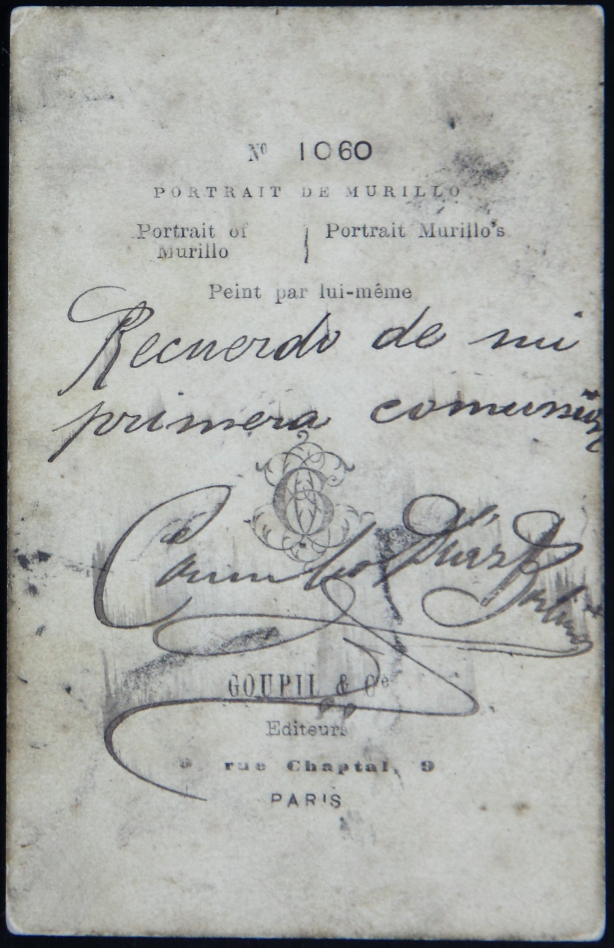 Nº 1060
PORTRAIT DE MURILLO
Portrait of Murillo
Portrait Murillo's
Peint par lui-même
Recuerdo de mi
primera comunión
Díaz
GOUPIL & Cie
Editeurs
9 rue Chaptal, 9
PARIS